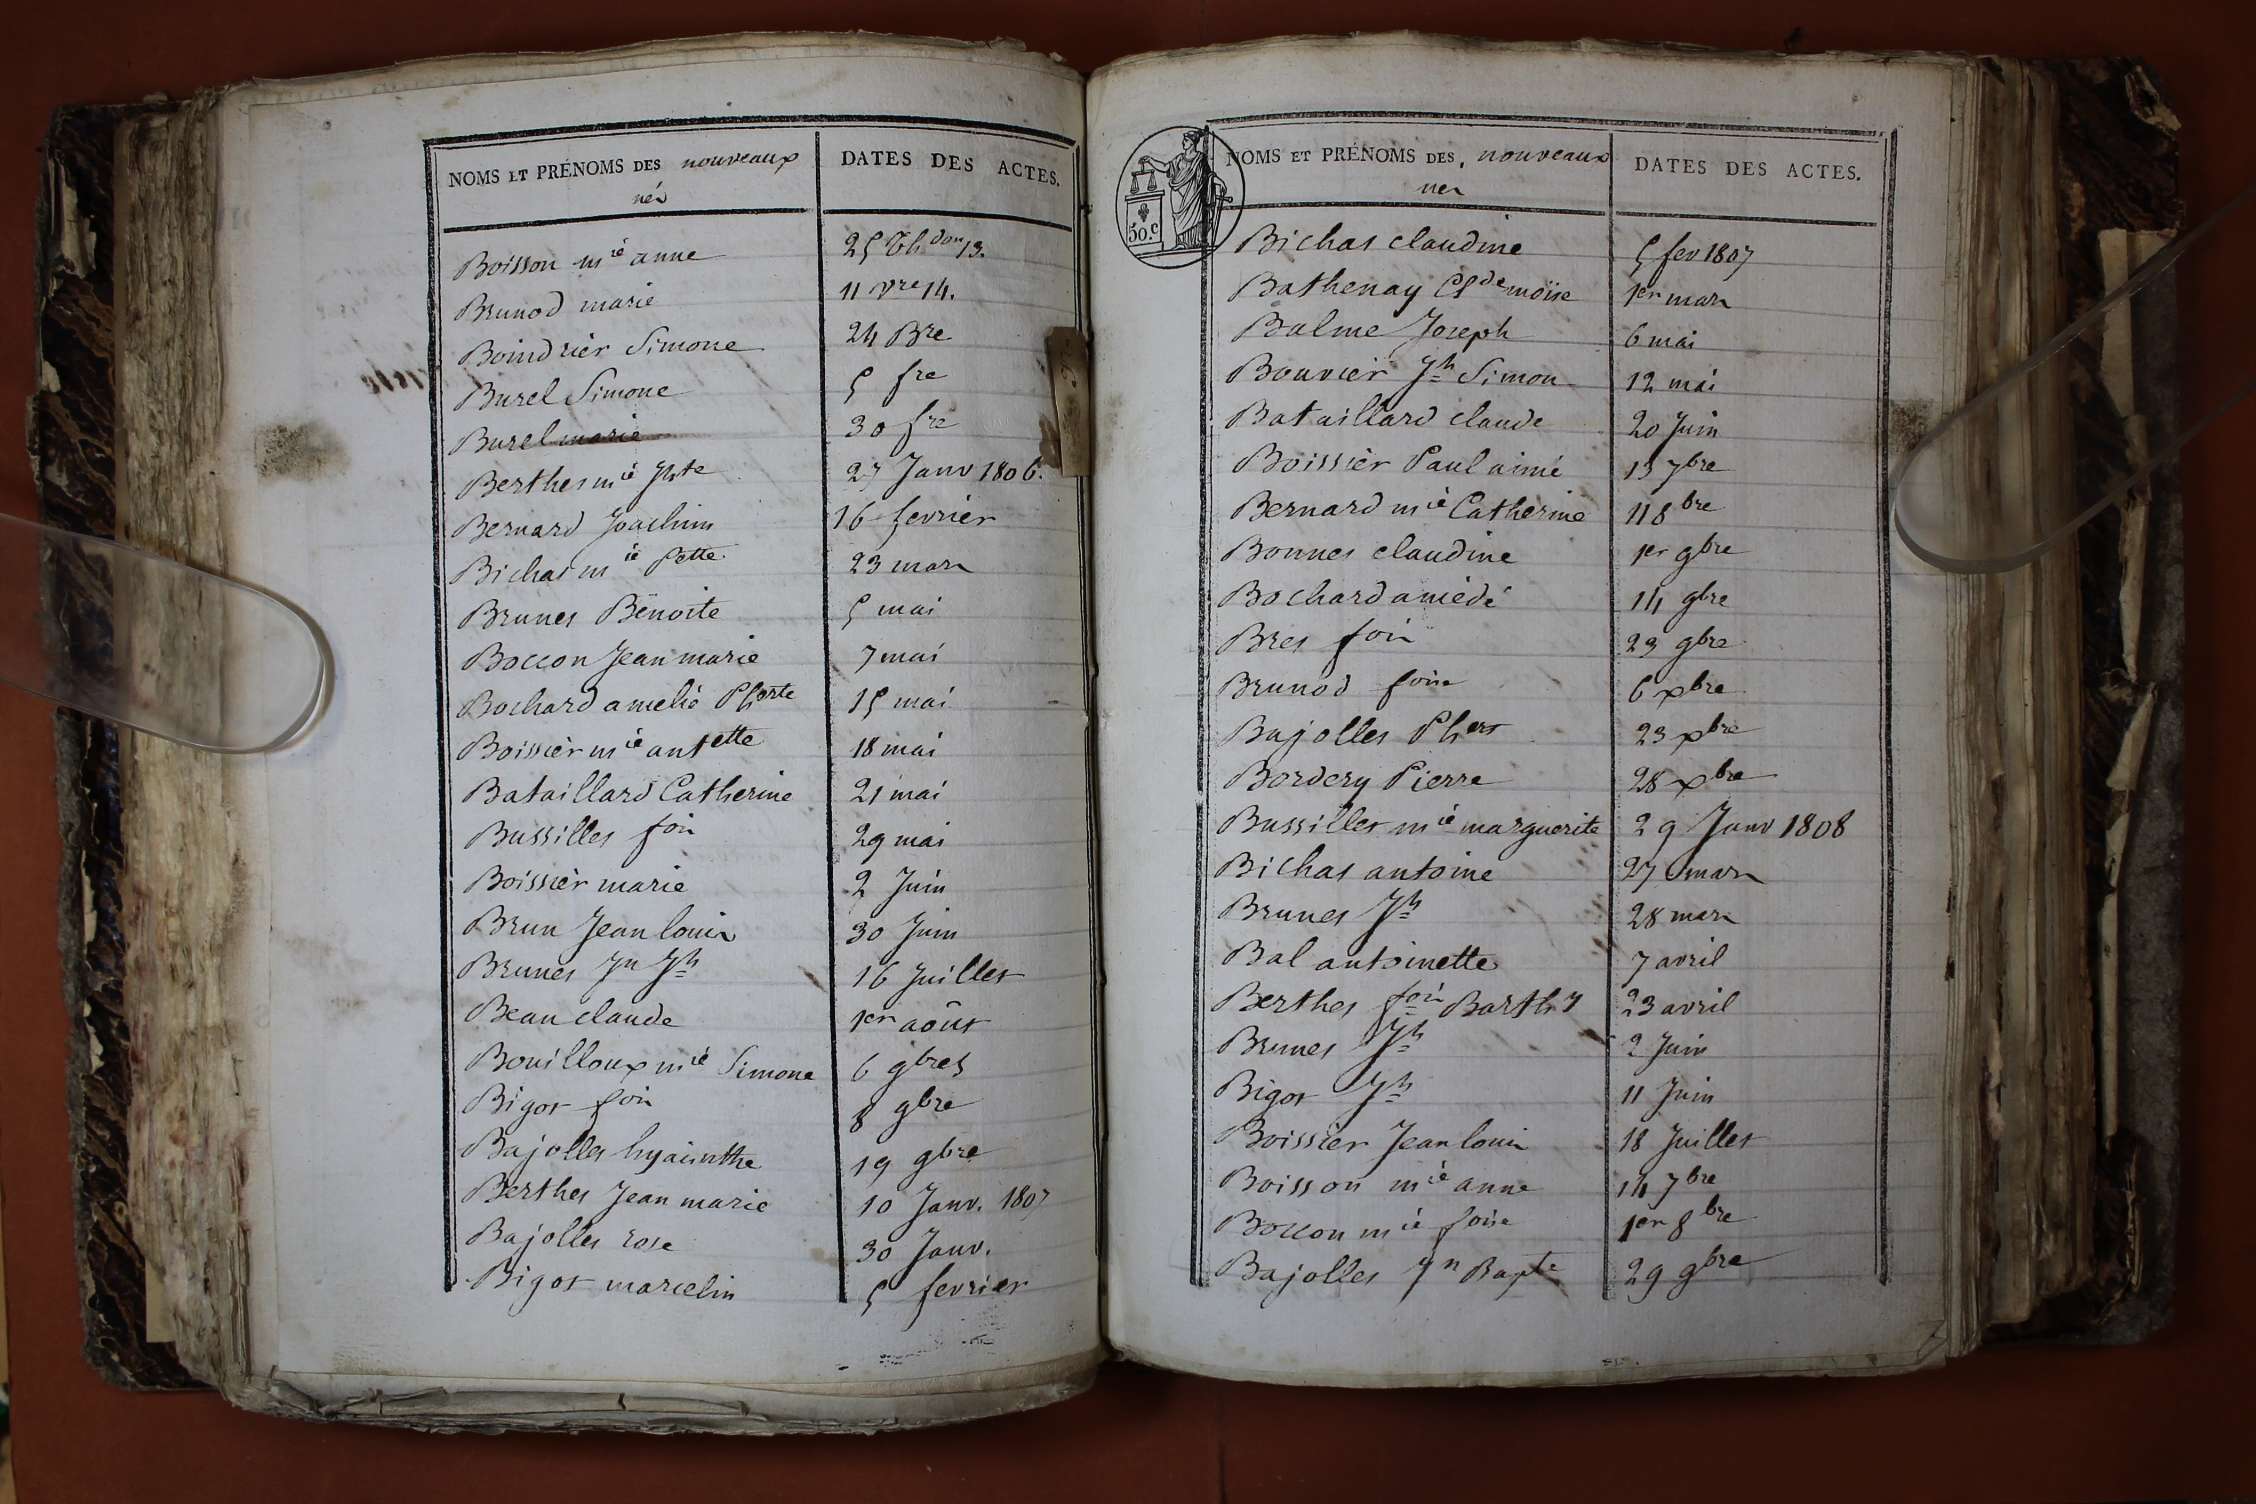 NOMS ET PRÉNOMS DES nouveaux DATES DES ACTES.
nés
Boisson mie anne 25 thdor 13.
Brunod marie 11 vre 14.
Boindrier Simone 24 Bre
Burel Simone 5 fre
Burel marie 30 fre
Berthes mie hte 27 Janv 1806.
Bernard Joachim 16 fevrier
Bichas mie Pette 23 mars
Brunes Benoite 5 mai
Boccon Jean marie 7 mai
Bochard amelie Phorte 15 mai
Boissier mie antette 18 mai
Bataillard Catherine 21 mai
Bussilles fois 29 mai
Boissier marie 2 Juin
Brun Jean louis 30 Juin
Brunes Jn Jh 16 Juillet
Beau claude 1er août
Bouilloux mie Simone 6 9bres
Bigot fois 8 9bre
Bajolles hyacinthe 19 9bre
Berthes Jean marie 10 Janv. 1807
Bajolles rose 30 Janv.
Bigot marcelin 5 fevrier
NOMS ET PRÉNOMS DES nouveaux DATES DES ACTES.
nés
50.c
Bichas claudine 5 fev 1807
Bathenay Clde moïse 1er mars
Balme Joseph 6 mai
Bouvier Jh Simon 12 mai
Bataillard claude 20 Juin
Boissier Paul aimé 13 7bre
Bernard mie Catherine 11 8bre
Bonnes claudine 1er 9bre
Bochard amédé 14 9bre
Bres fois 23 9bre
Brunod foise 6 xbre
Bajolles Phers 23 xbre
Bordery Pierre 28 xbre
Bussilles mie marguerite 29 Janv 1808
Bichas antoine 27 mars
Brunes Jh 28 mars
Bal antoinette 7 avril
Berthes fois Barthy 23 avril
Brunes Jh 2 Juin
Bigot Jh 11 Juin
Boissier Jean louis 18 Juillet
Boisson mie anne 14 7bre
Boccon mie foise 1er 8bre
Bajolles Jn Bapte 29 9bre